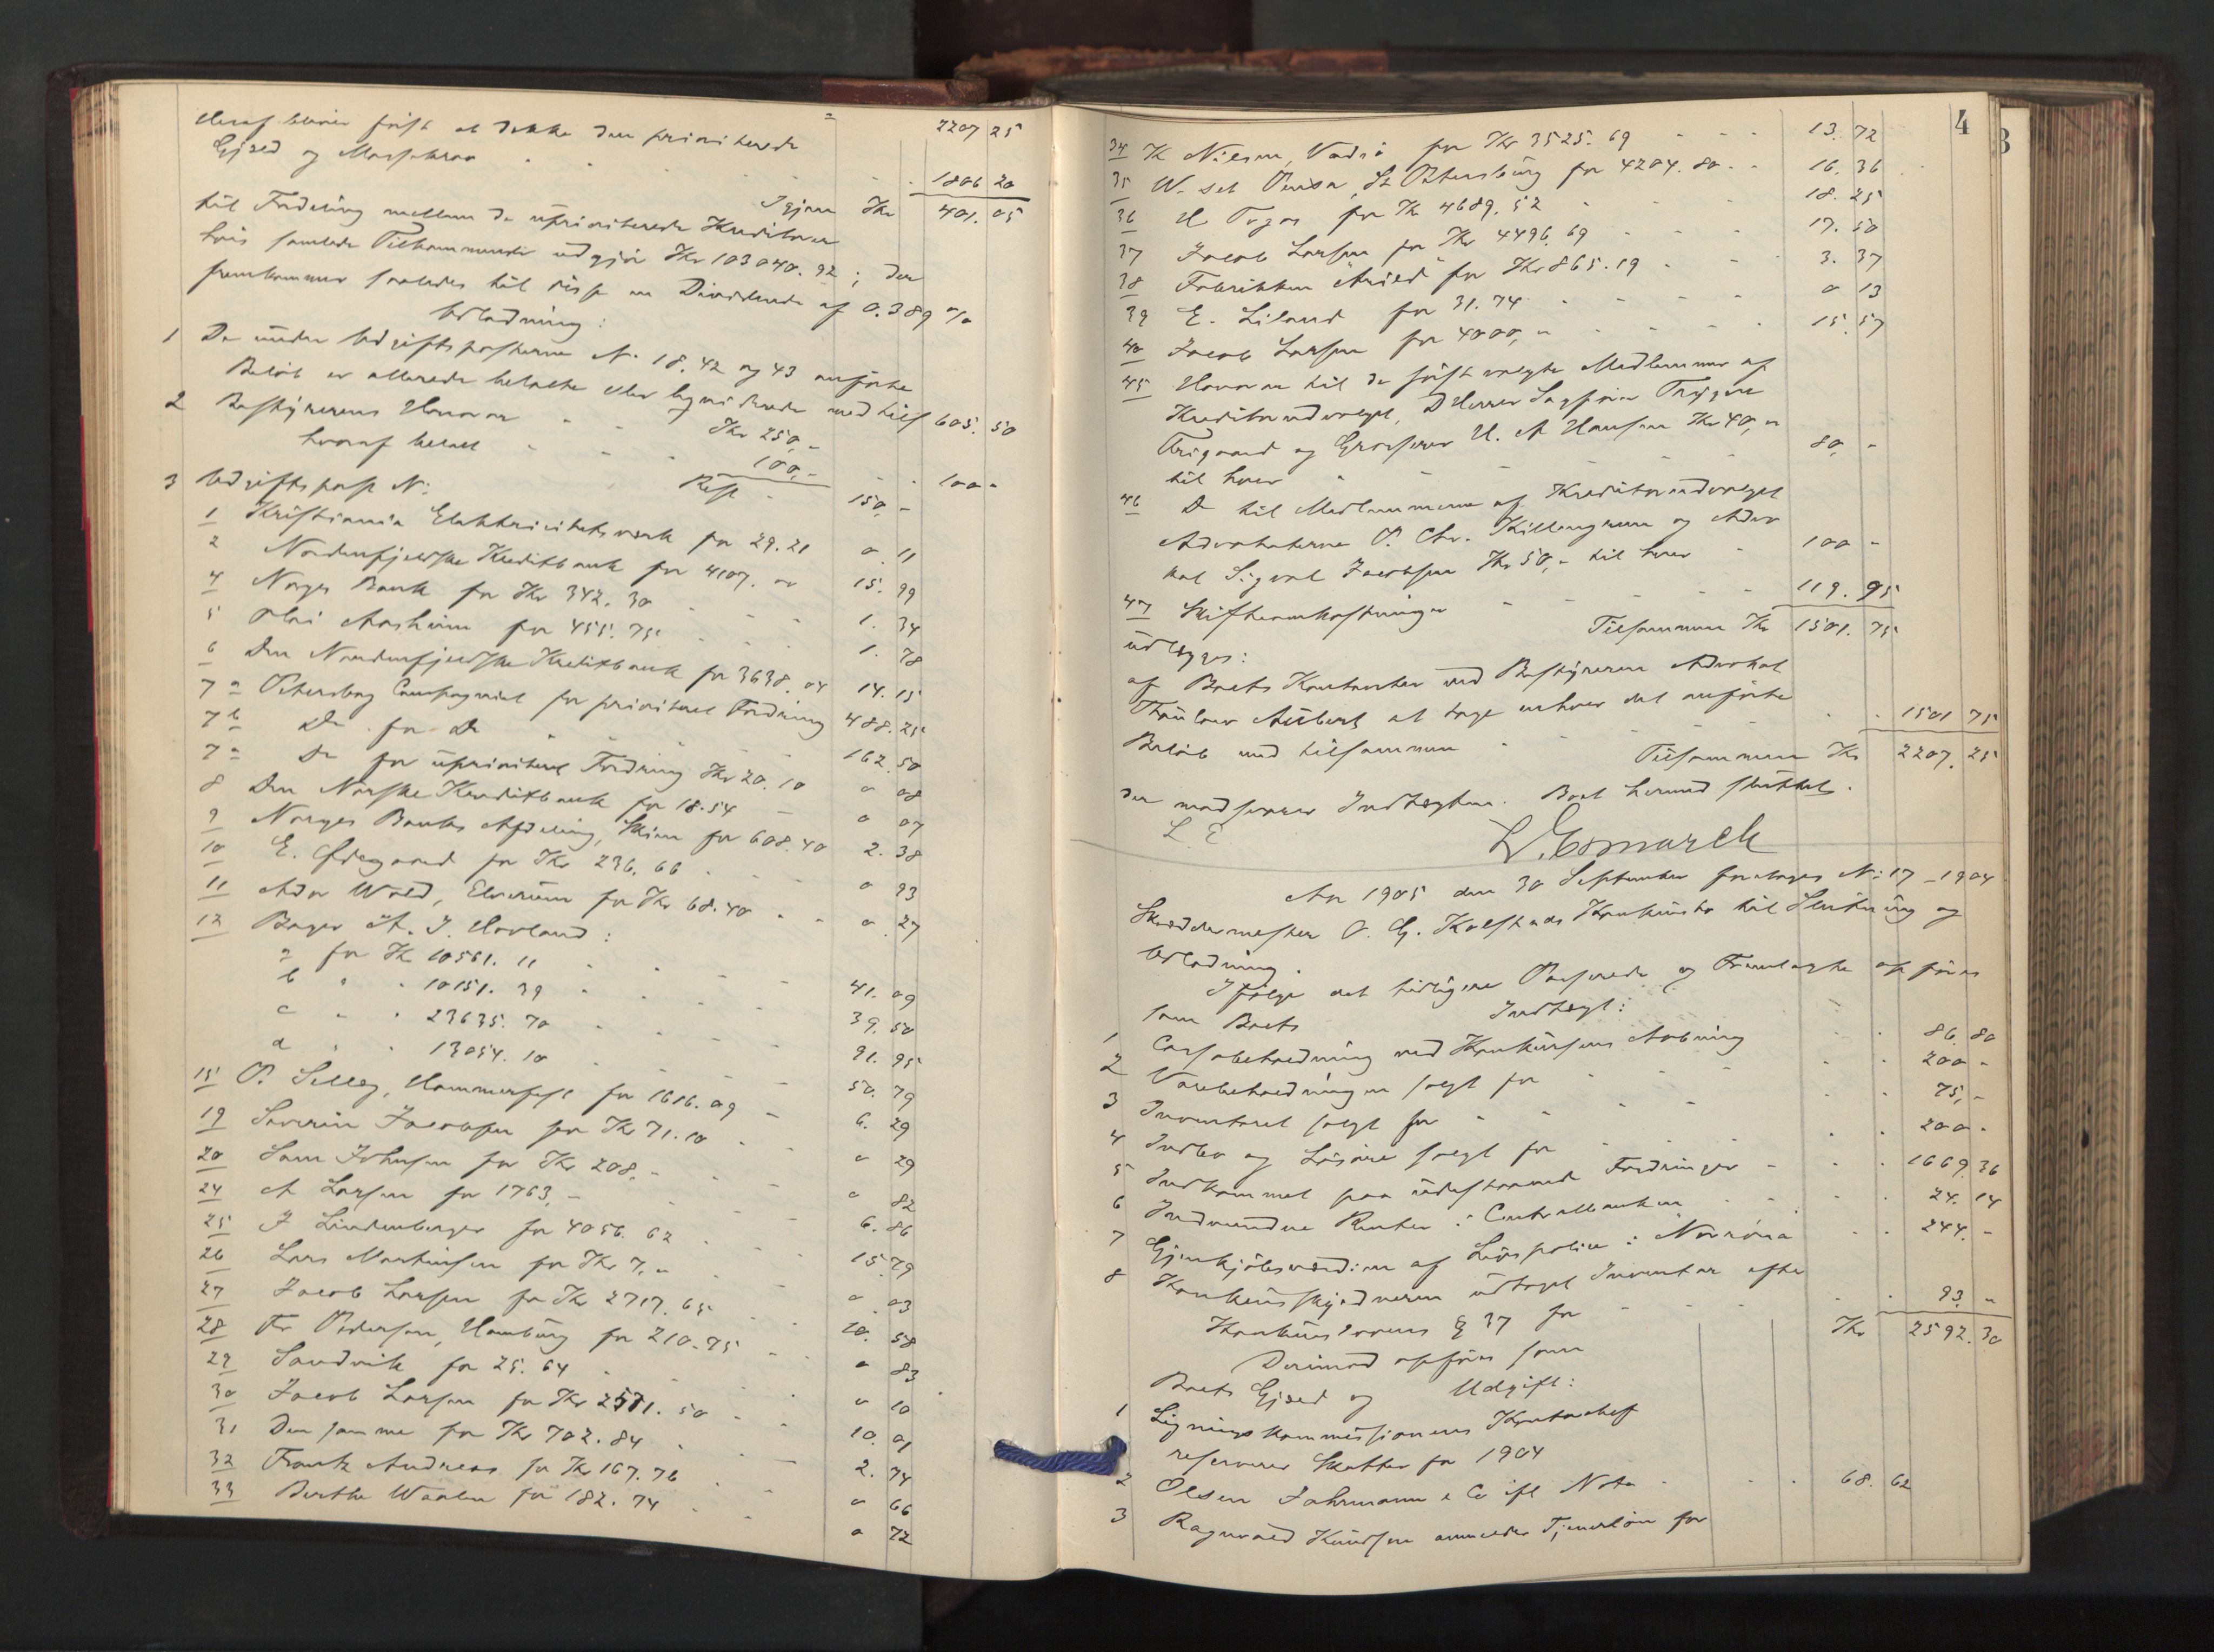 Heraf bliver først at dække den prioriterede 2207 25
Gjæld og Massekrav 1806 20
Igjen Kr 401. 05
til Fordeling mellem de uprioriterede Kreditorer
hvis samlede Tilkommende udgjør Kr 103040. 92; der
fremkommer saaledes til disse en Dividende af 0.389 %
Udlodning:
1 De under Udgiftsposterne No 18. 42 og 43 anførte
Beløb er allerede betalte eller likviderede med tils 605. 50
2 Bestyrerens Honorar Kr 250,-
hvoraf betalt 100,- 100 -
Rest 150, -
3 Udgiftspost No:
1 Kristiania Elektricitetsverk for 29. 21 0 11
2 Nordenfjeldske Kreditbank for 4107. 00 15. 99
4 Norges Bank for Kr 342. 30 1. 34
5 Olai Aasheim for 455. 75 1. 78
6 Den Nordenfjeldske Kreditbank for 3638. 04 14. 15
7 a Petersborg Compagniet for prioriteret Fordring 488. 25
7 b Do for Do 162. 50
7 a Do for uprioriteret Fordring Kr 20. 10 0 08
8 Den Norske Kreditbank for 18.54 0 07
9 Norges Banks Afdeling, Skien for 608. 40 2. 38
10 E. Ødegaard for Kr 236. 66 0 93
11 Adv Wold, Elverum for Kr 68. 40 0 27
12 Bager A. J. Hovland:
a for Kr 10561. 11 41. 09
b " " 10151. 39 39. 50
c " " 23635. 70 91. 95
d " " 13054. 10 50. 79
15 P. Selleg, Hammerfest for 1616. 09 6. 29
19 Severin Jacobsen for Kr 71. 10 0 29
20 Sam Johnsen for Kr 208. - 0 82
24 A Larsen for 1763, - 6. 86
25 J Lindenberger for 4056. 62 15. 79
26 Lars Martinsen for Kr 7. - 0 03
27 Jacob Larsen for Kr 2717. 65 10. 58
28 Fr Pedersen, Hamburg for 210. 95 0 83
29 Sandvik for 25. 64 0 10
30 Jacob Larsen for Kr 2571. 50 10. 01
31 Den samme for Kr 702. 84 2. 74
32 Frantz Andreas for Kr 167. 76 0 66
33 Berthe Waalen for 182. 74 0 72
4
34 K Nilsen, Vadsø for Kr 3525. 69 13. 72
35 W. St Petersburg for 4204. 80 16. 36
36 for Kr 4689. 52 18. 25
37 Jacob Larsen for Kr 4496. 69 17. 50
38 Fabrikken for Kr 865. 19 3. 37
39 E. Liland for 31. 74 0 13
40 Jacob Larsen for 4000, - 15. 57
45 Honorar til de først valgte Medlemmer af
Kreditorudvalget, D'Herrer Sagfører Trygve
og Grosserer H. A Hansen Kr 40, -
til hver 80, -
46 Do til Medlemmerne af Kreditorudvalget
Advokaterne P. Chr. Killengreen og Advo
kat Sigval Jacobsen Kr 50,- til hver 100 -
47 Skifteomkostninger 119. 95
Tilsammen Kr 1501. 75
udlægges:
af Boets Kontanter ved Bestyreren Advokat
Thaulow Aubert at tage enhver det anførte
Beløb med tilsammen 1501 75
Tilsammen Kr 2207. 25
der modsvarer Indtægten. Boet hermed sluttet.
L. E L. Esmarch
Aar 1905 den 30 September foretoges No 17 - 1904
Skræddermester O. G. Kolstads Konkursbo til Slutning og
Udlodning.
Ifølge det tidligere Passerede og Fremlagte opføres
som Boets Indtægt:
1 Cassabeholdning ved Konkursens Aabning 86. 80
2 Varebeholdningen solgt for 200 -
3 Inventaret solgt for 75, -
4 Indbo og Løsøre solgt for 200 -
5 Indkommet paa udestaaende Fordringer 1669. 36
6 Indvundne Renter i Centralbanken 24. 14
7 Gjenkjøbsværdien af Livspolice i Norrøna 244. -
8 Konkursskyldneren udtaget Inventar efter
Konkurslovens § 37 for 93, -
Kr 2592. 30
Derimod opføres som
Boets Gjæld og Udgift:
1 Ligningskommissionens Kontorchef
reserverer Skatter for 1904
2 Olsen Johrmann & Co ifl Nota 68. 62
3 Ragnvald Knudsen anmelder Tjenerløn for